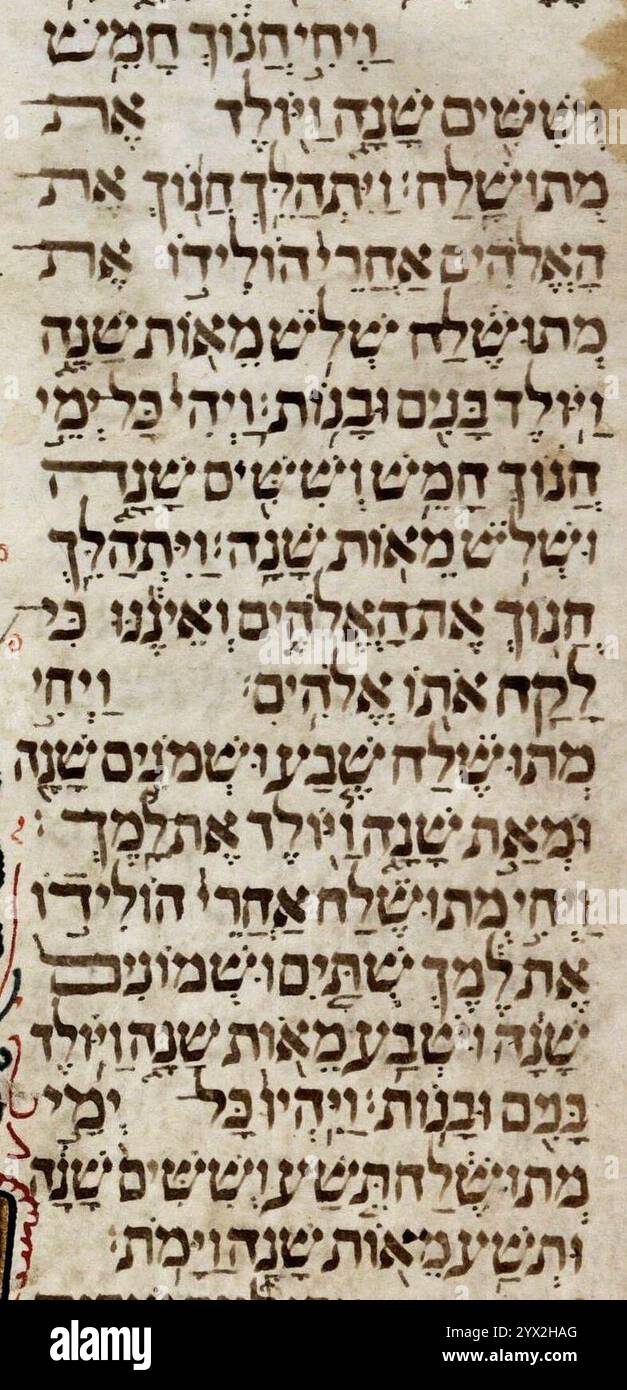 וַיְחִי חֲנוֹךְ חָמֵשׁ
וְשִׁשִּׁים שָׁנָה וַיּוֹלֶד אֶת
מְתוּשָׁלַח׃ וַיִּתְהַלֵּךְ חֲנוֹךְ אֶת
הָאֱלֹהִים אַחֲרֵי הוֹלִידוֹ אֶת
מְתוּשֶׁלַח שְׁלֹשׁ מֵאוֹת שָׁנָה
וַיּוֹלֶד בָּנִים וּבָנוֹת׃ וַיְהִי כָּל יְמֵי
חֲנוֹךְ חָמֵשׁ וְשִׁשִּׁים שָׁנָה
וּשְׁלֹשׁ מֵאוֹת שָׁנָה׃ וַיִּתְהַלֵּךְ
חֲנוֹךְ אֶת הָאֱלֹהִים וְאֵינֶנּוּ כִּי
לָקַח אֹתוֹ אֱלֹהִים׃ וַיְחִי
מְתוּשֶׁלַח שֶׁבַע וּשְׁמֹנִים שָׁנָה
וּמְאַת שָׁנָה וַיּוֹלֶד אֶת לָמֶךְ׃
וַיְחִי מְתוּשֶׁלַח אַחֲרֵי הוֹלִידוֹ
אֶת לֶמֶךְ שְׁתַּיִם וּשְׁמוֹנִים
שָׁנָה וּשְׁבַע מֵאוֹת שָׁנָה וַיּוֹלֶד
בָּנִים וּבָנוֹת׃ וַיִּהְיוּ כָּל יְמֵי
מְתוּשֶׁלַח תֵּשַׁע וְשִׁשִּׁים שָׁנָה
וּתְשַׁע מֵאוֹת שָׁנָה וַיָּמֹת׃
alamy
Image ID: 2YX2HAG
www.alamy.com